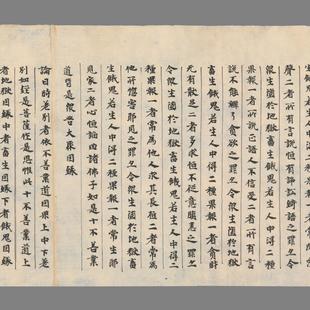 聲二者所有言說恒有諍訟綺語之罪亦令
眾生墮於地獄畜生餓鬼若生人中得二種
果報一者所有言語人不信受二者所有言
說不能辯了貪欲之罪亦令眾生墮於地獄
畜生餓鬼若生人中得二種果報一者貪財
无有猒足二者多求恒不從意瞋惱之罪亦
令眾生墮於地獄畜生餓鬼若生人中得二
種果報一者常為他人求其長短二者常為
他所惱害邪見之罪亦令眾生墮於地獄畜
生餓鬼若生人中得二種果報一者常生邪
見家二者心恒諂曲諸佛子如是十不善業
道皆是眾苦大聚因緣
論曰時差別者依不善業道因果上中下差
別如經是菩薩作是思惟此十不善業道上
者地獄因緣中者畜生因緣下者餓鬼因緣